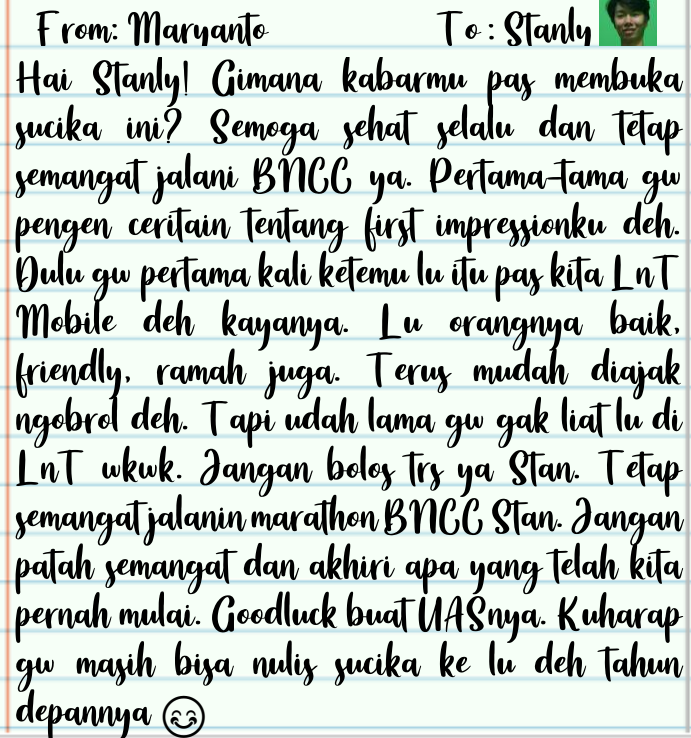 From: Maryanto To : Stanly
Hai Stanly! Gimana kabarmu pas membuka
sucika ini? Semoga sehat selalu dan tetap
semangat jalani BNCC ya. Pertama-tama gw
pengen ceritain tentang first impressionku deh.
Dulu gw pertama kali ketemu lu itu pas kita LnT
Mobile deh kayanya. Lu orangnya baik,
friendly, ramah juga. Terus mudah diajak
ngobrol deh. Tapi udah lama gw gak liat lu di
LnT wkwk. Jangan bolos trs ya Stan. Tetap
semangat jalanin marathon BNCC Stan. Jangan
patah semangat dan akhiri apa yang telah kita
pernah mulai. Goodluck buat UASnya. Kuharap
gw masih bisa nulis sucika ke lu deh tahun
depannya 😊